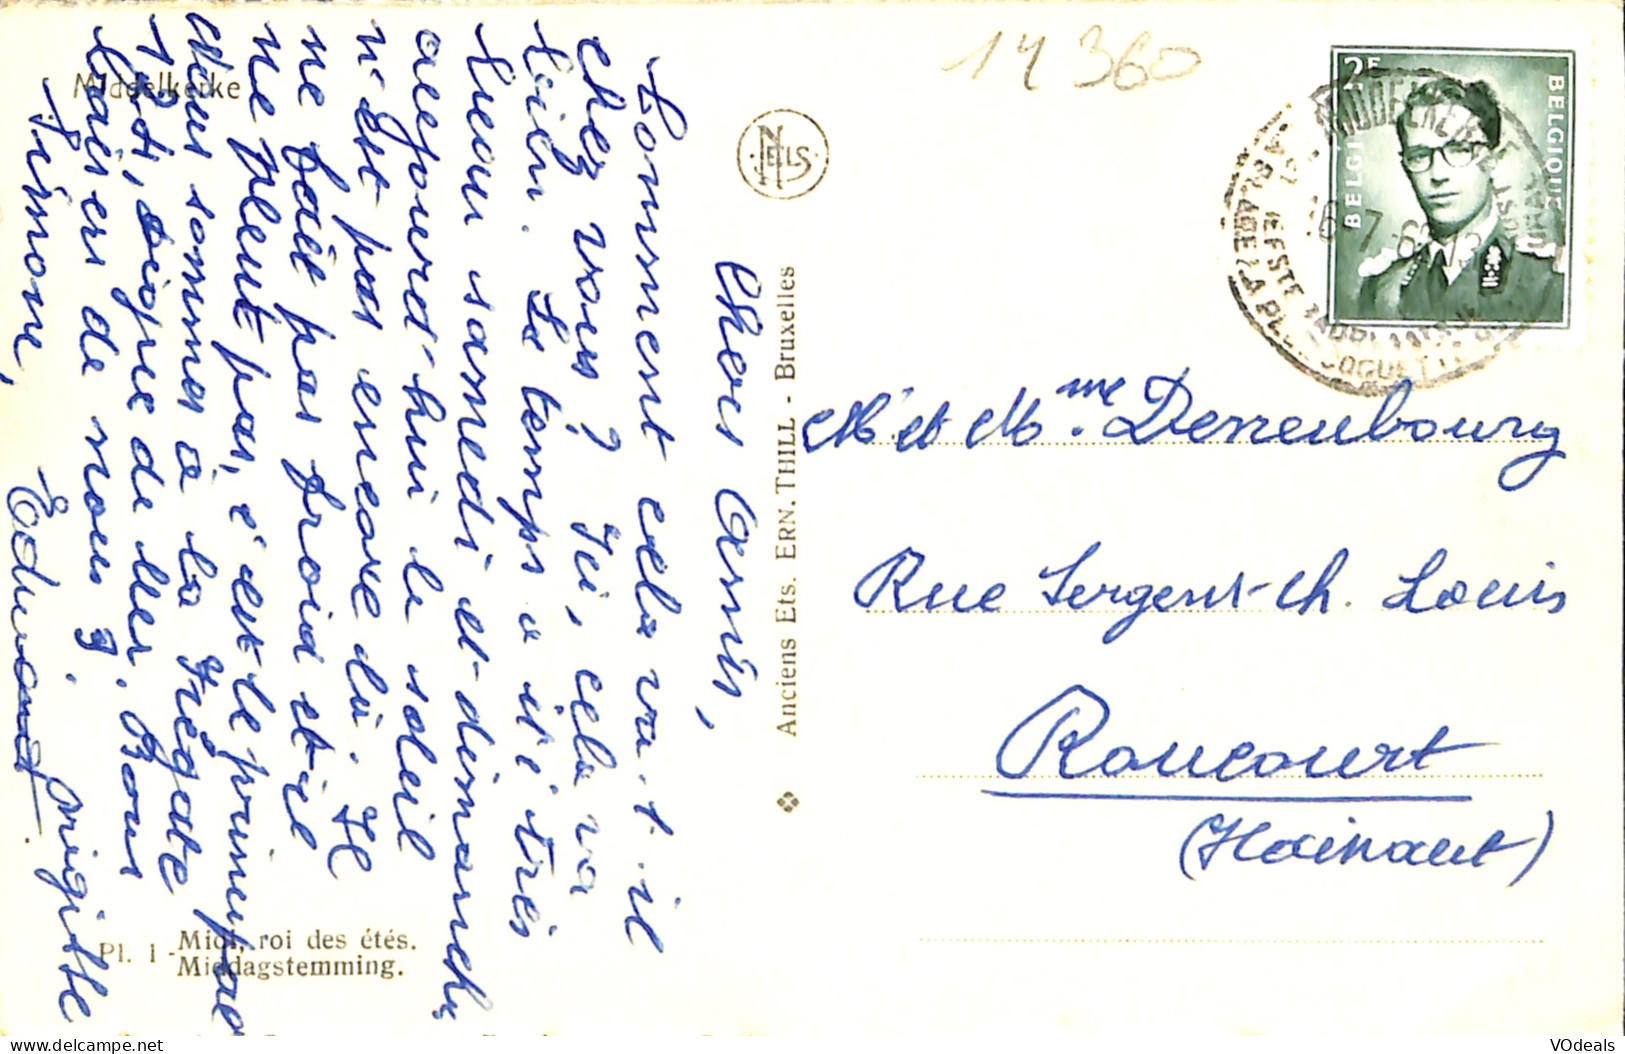 Middelkerke
14360
Chers amis,
Comment cela va-t-il
chez vous? Ici, cela va
bien. Le temps a été très
beau samedi et dimanche
aujourd'hui le soleil
n'est pas encore là. Il
ne fait pas froid et il
ne pleut pas, c'est le principal
Nous sommes à la Frégate
digue de Mer. Bons
baisers de nous 3.
Simone,
Edmond
Brigitte
Pl. 1 - Midi, roi des étés.
Middagstemming.
NELS
Anciens Ets. ERN. THILL - Bruxelles
2F
BELGIE
BELGIQUE
MIDDELKERKE
M. et Mme Derrenbourg
Rue Sergent-Ch. Louis
Roucourt
(Hainaut)
VOdeals
www.delcampe.net